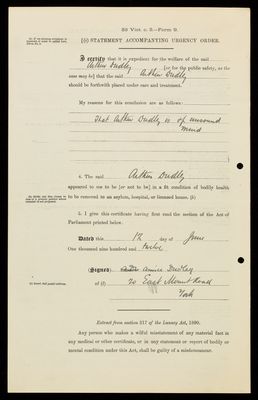 53 Vict. c. 5.—Form 9.
[(c) STATEMENT ACCOMPANYING URGENCY ORDER.
I certify that it is expedient for the welfare of the said
Arthur Dudley [or for the public safety, as the
case may be] that the said Arthur Dudley
should be forthwith placed under care and treatment.
My reasons for this conclusion are as follows:
That Arthur Dudley is of unsound
mind
4. The said Arthur Dudley
appeared to me to be [or not to be] in a fit condition of bodily health
to be removed to an asylum, hospital, or licensed house. (k)
5. I give this certificate having first read the section of the Act of
Parliament printed below.
Dated this 12 day of June
One thousand nine hundred and twelve
(Signed) Annie Dudley
of (l) 20 East Mount Road
York
(l) Insert full postal address.
Extract from section 317 of the Lunacy Act, 1890.
Any person who makes a wilful misstatement of any material fact in
any medical or other certificate, or in any statement or report of bodily or
mental condition under this Act, shall be guilty of a misdemeanour.